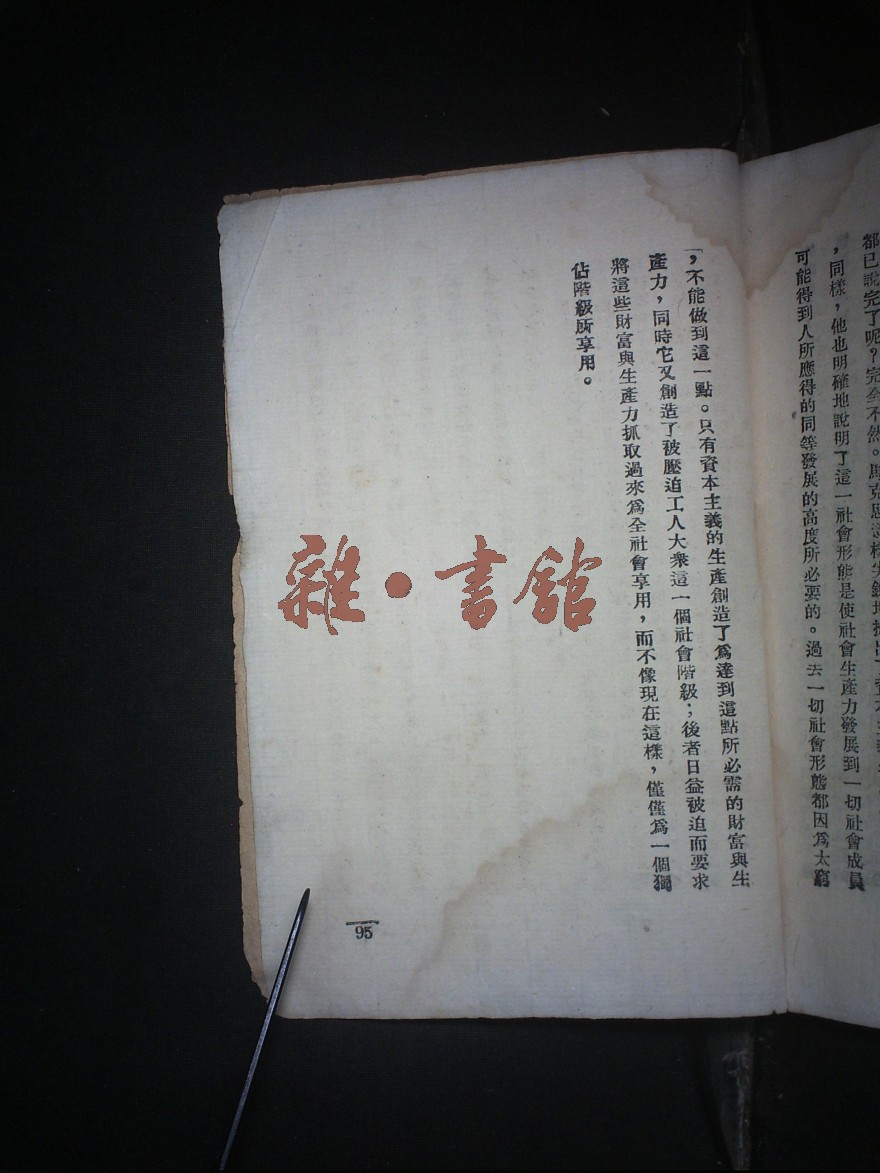 都已說完了呢?完全不然。馬克思這樣尖銳地
,同樣,他也明確地說明了這一社會形態是使社會生產力發展到一切社會成員
可能得到人所應得的同等發展的高度所必要的。過去一切社會形態都因爲太窮
「,不能做到這一點。只有資本主義的生產創造了爲達到這點所必需的財富與生
產力,同時它又創造了被壓迫工人大衆這一個社會階級;後者日益被迫而要求
將這些財富與生產力抓取過來爲全社會享用,而不像現在這樣,僅僅爲一個獨
佔階級所享用。
雜·書館
95